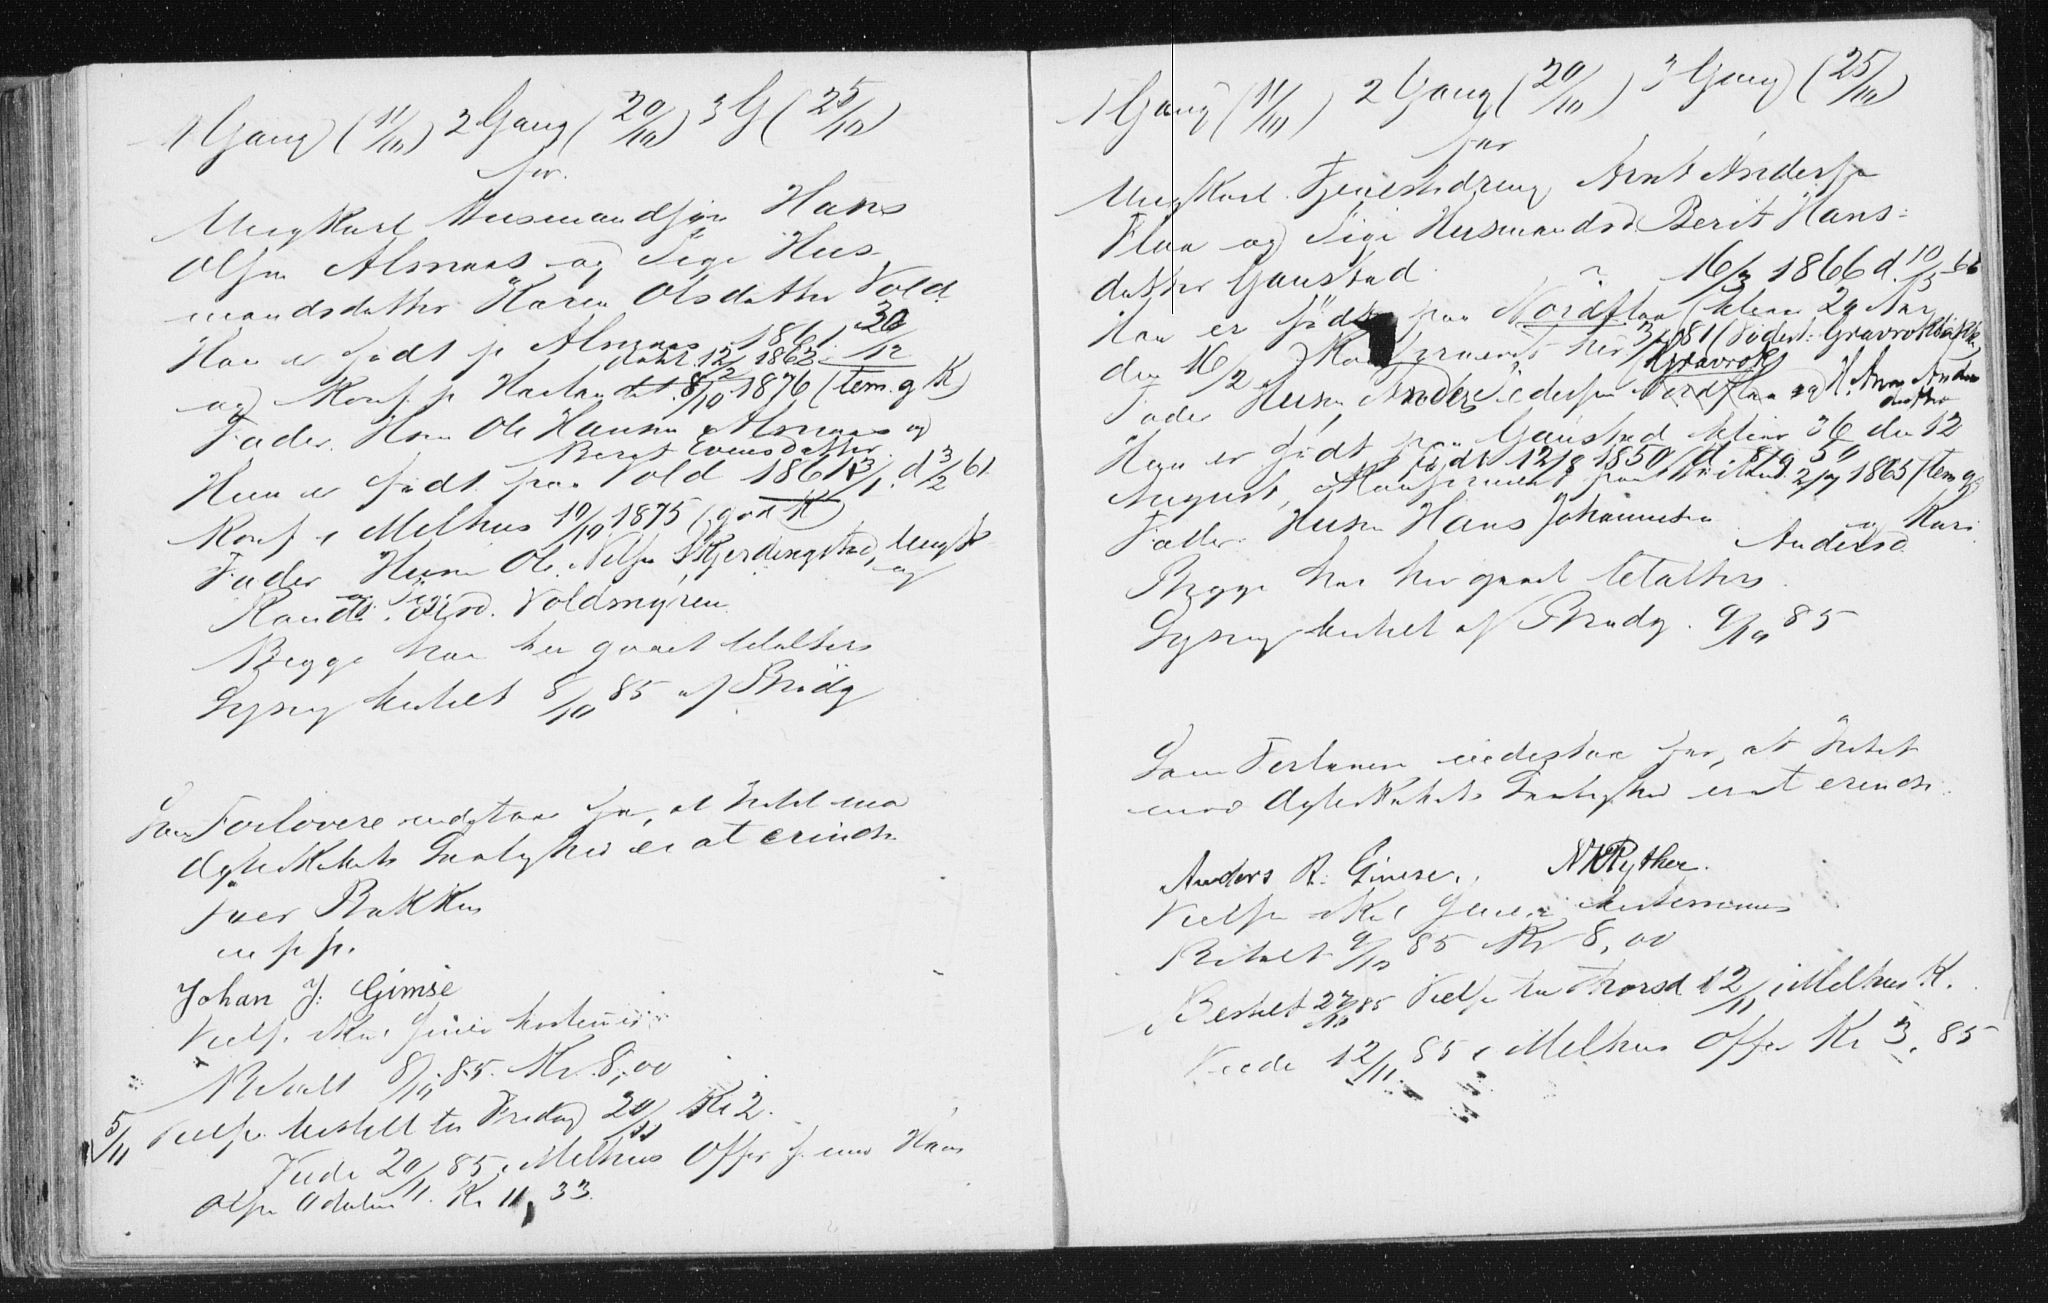 1 Gang (11/10) 2 Gang (20/10) 3 G (25/10)
for
Ungkarl Husmandssøn Hans
Olsen Almaas og Pige Hus
mandsdatter Karen Olsdatter Vold
Han er født p Almaas 1861 30/12
døbt 12/2 1862
og Konf. p Horten 8/10 1876 (tem. g K)
Fader. Hsm Ole Hansen Almaas og
Berit Evensdatter
Hun er født paa Vold 1861 3/1 d 3/2 61
Konf i Melhus 10/10 1875 (god K)
Fader Husm Ole Nilsen Skjerdingstad, Ungk
og Pige og
Randi Olsd. Voldmyren
Begge har her gaaet til alters
Lysing bestilt 8/10 85 af Brudg
Som Forlovere indestaa for, at Intet mod
dette Ægteskabs Lovlighed er at erindre
Iver Bakken
m p p.
Johan J. Gimse
Vielse skal
Betalt 8/10 85. Kr. 8,00
5/11 Vielse bestilt til Fredag 20/11 Kr 2.
Viede 20/11 85 i Melhus Offer f. mig Hans
Olsen Kr 11,33.
1 Gang (11/10) 2 Gang (20/10) 3 Gang (25/10)
for
Ungkarl Tjenestedreng Arnt Andersen
Flaa og Pige Husmandsd Berit Hans=
datter Gaustad
16/2 1866 d. 10/5 66
Han er født paa Nordflaa (bliver 20 Aar
den 16/2) Konfirmeret her 81 (Fødest: Gravrok
Gravrok
Fader Husm Anders Pedersen Nordflaa og H. Anne Anders
datter
Hun er født paa Gaustad bliver 36 den 12
født 12/8 1850 d 8/9 50
August, Konfirmeret paa 2/7 1865 (tem g
Fader: Husm Hans Johannesen og Kari
Andersd
Begge har her gaaet til alters.
Lysing bestilt af Brudg. 9/10 85
Som Forlovere indestaa for, at Intet
mod dette Ægteskabs Lovlighed er at erindre.
Anders R. Gimse., N K Ryther.
Vielse skal
Betalt 9/10 85 Kr 8,00
Bestilt 27/10 85 Vielse til Thorsd 12/11 i Melhus K.
Viede 12/11 85 i Melhus Offer Kr 3,85